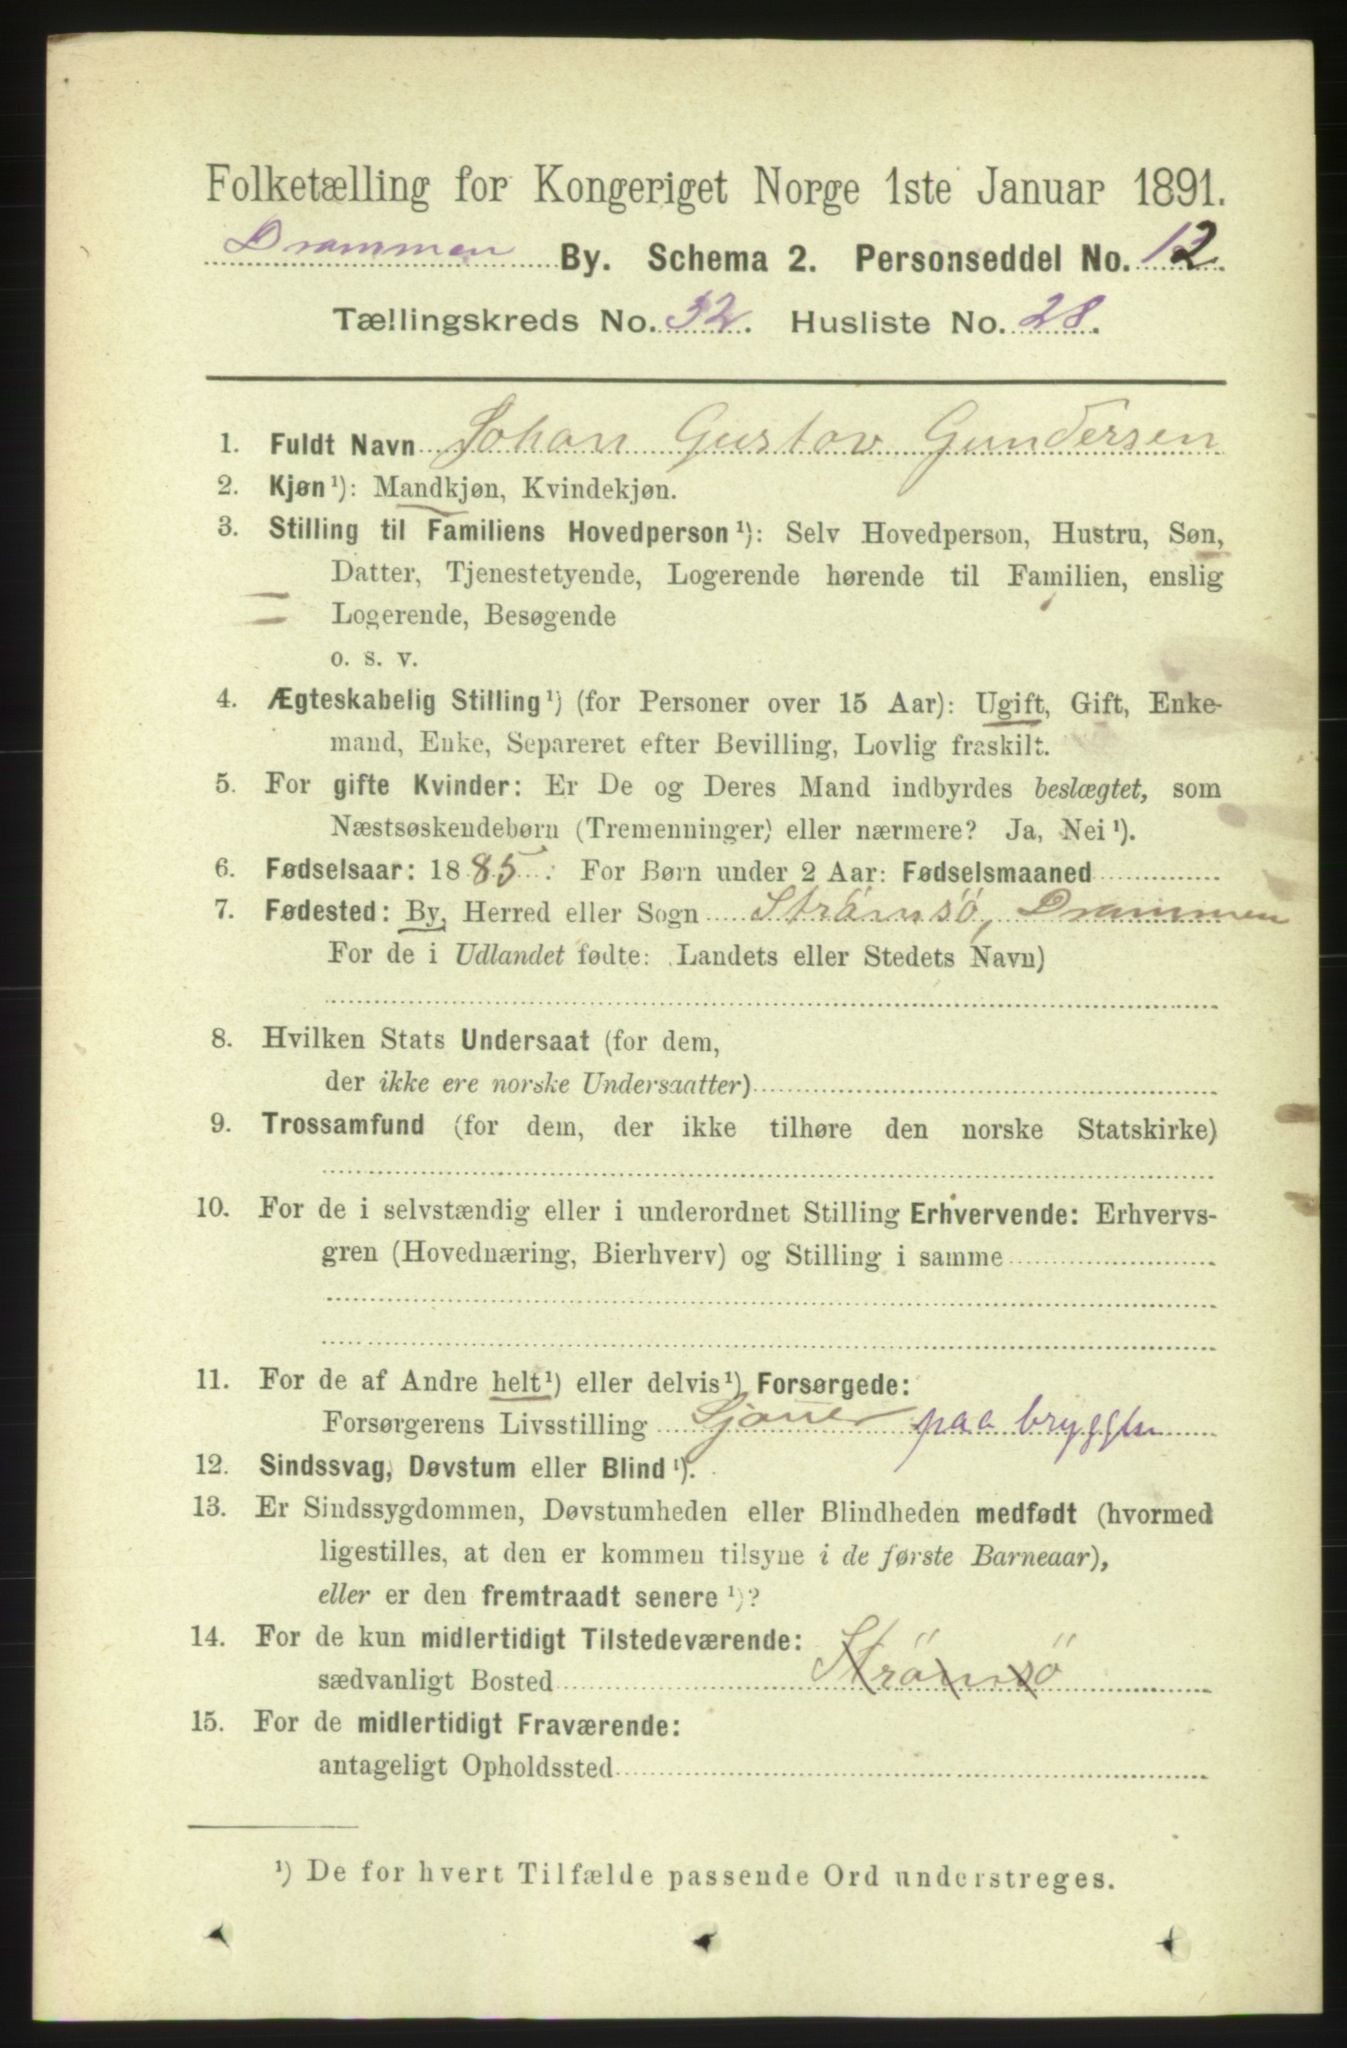 Folketælling for Kongeriget Norge 1ste Januar 1891.
Drammen By. Schema 2. Personseddel No. 12
Tællingskreds No. 32. Husliste No. 28.
1. Fuldt Navn Johan Gustav Gundersen
2. Kjøn¹): Mandkjøn, Kvindekjøn.
3. Stilling til Familiens Hovedperson¹): Selv Hovedperson, Hustru, Søn,
Datter, Tjenestetyende, Logerende hørende til Familien, enslig
Logerende, Besøgende
o. s. v.
4. Ægteskabelig Stilling¹) (for Personer over 15 Aar): Ugift, Gift, Enke-
mand, Enke, Separeret efter Bevilling, Lovlig fraskilt.
5. For gifte Kvinder: Er De og Deres Mand indbyrdes beslægtet, som
Næstsøskendebørn (Tremenninger) eller nærmere? Ja, Nei¹).
6. Fødselsaar: 1885. For Børn under 2 Aar: Fødselsmaaned
7. Fødested: By, Herred eller Sogn Strömsö, Drammen
For de i Udlandet fødte: Landets eller Stedets Navn)
8. Hvilken Stats Undersaat (for dem,
der ikke ere norske Undersaatter)
9. Trossamfund (for dem, der ikke tilhøre den norske Statskirke)
10. For de i selvstændig eller i underordnet Stilling Erhvervende: Erhvervs-
gren (Hovednæring, Bierhverv) og Stilling i samme
11. For de af Andre helt¹) eller delvis¹) Forsørgede:
Forsørgerens Livsstilling Sjouer paa bryggen
12. Sindssvag, Døvstum eller Blind¹).
13. Er Sindssygdommen, Døvstumheden eller Blindheden medfødt (hvormed
ligestilles, at den er kommen tilsyne i de første Barneaar),
eller er den fremtraadt senere¹)?
14. For de kun midlertidigt Tilstedeværende:
sædvanligt Bosted Strömsö
15. For de midlertidigt Fraværende:
antageligt Opholdssted
¹) De for hvert Tilfælde passende Ord understreges.